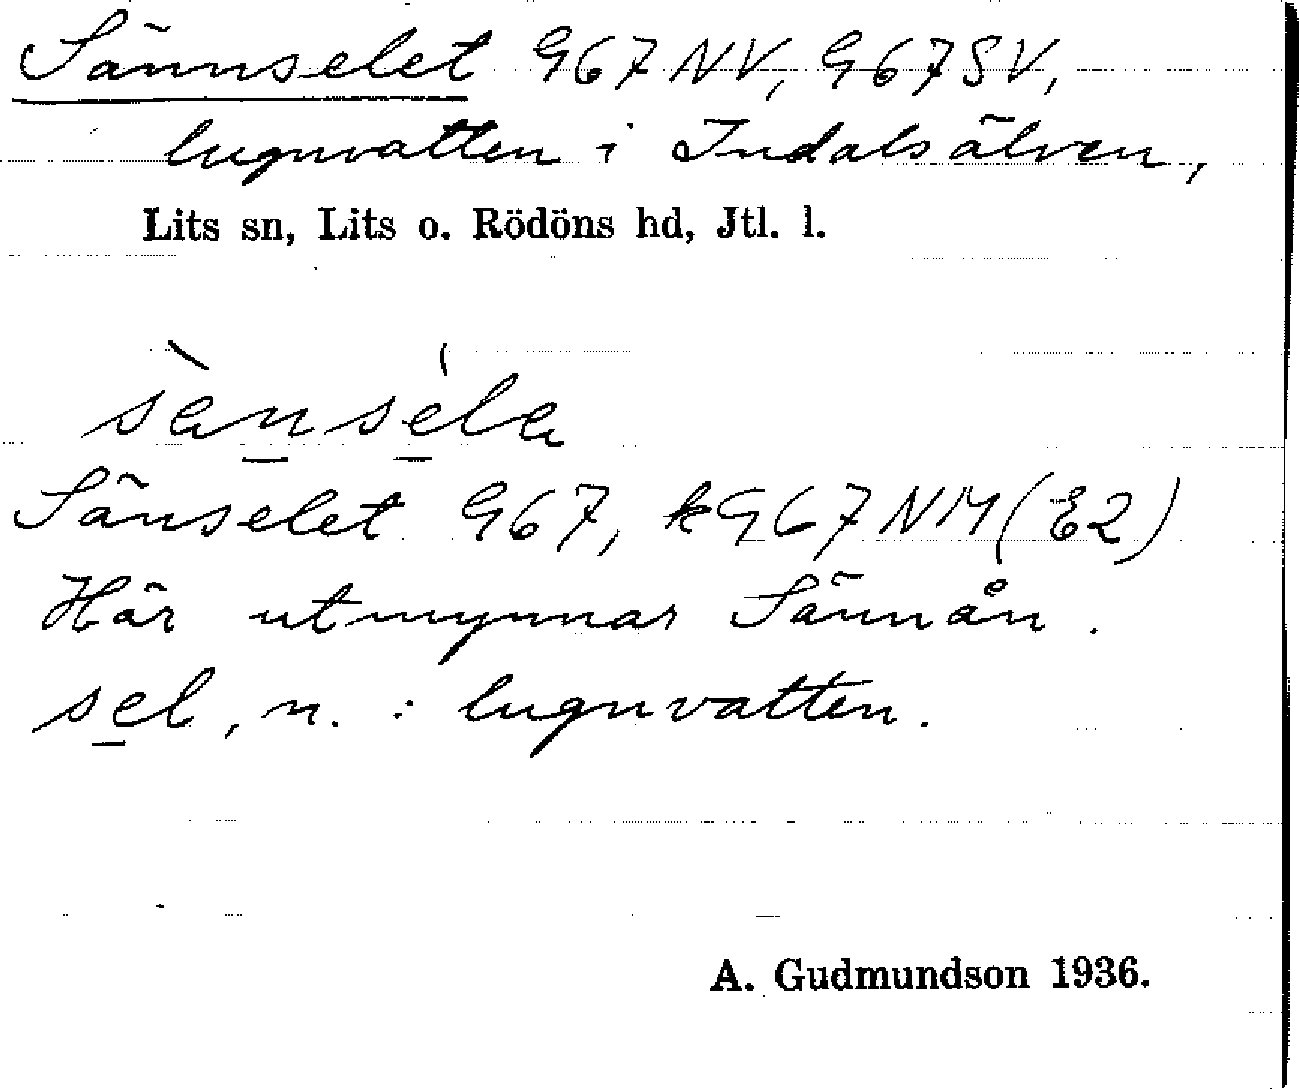 Sännselet G67NV, G67SV,
lugnvatten i Indalsälven,
Lits sn, Lits o. Rödöns hd, Jtl. l.
sänséla
Sänselet G67, kG67NM(E2)
Här utmynnar Sännån.
sel, n. : lugnvatten.
A. Gudmundson 1936.